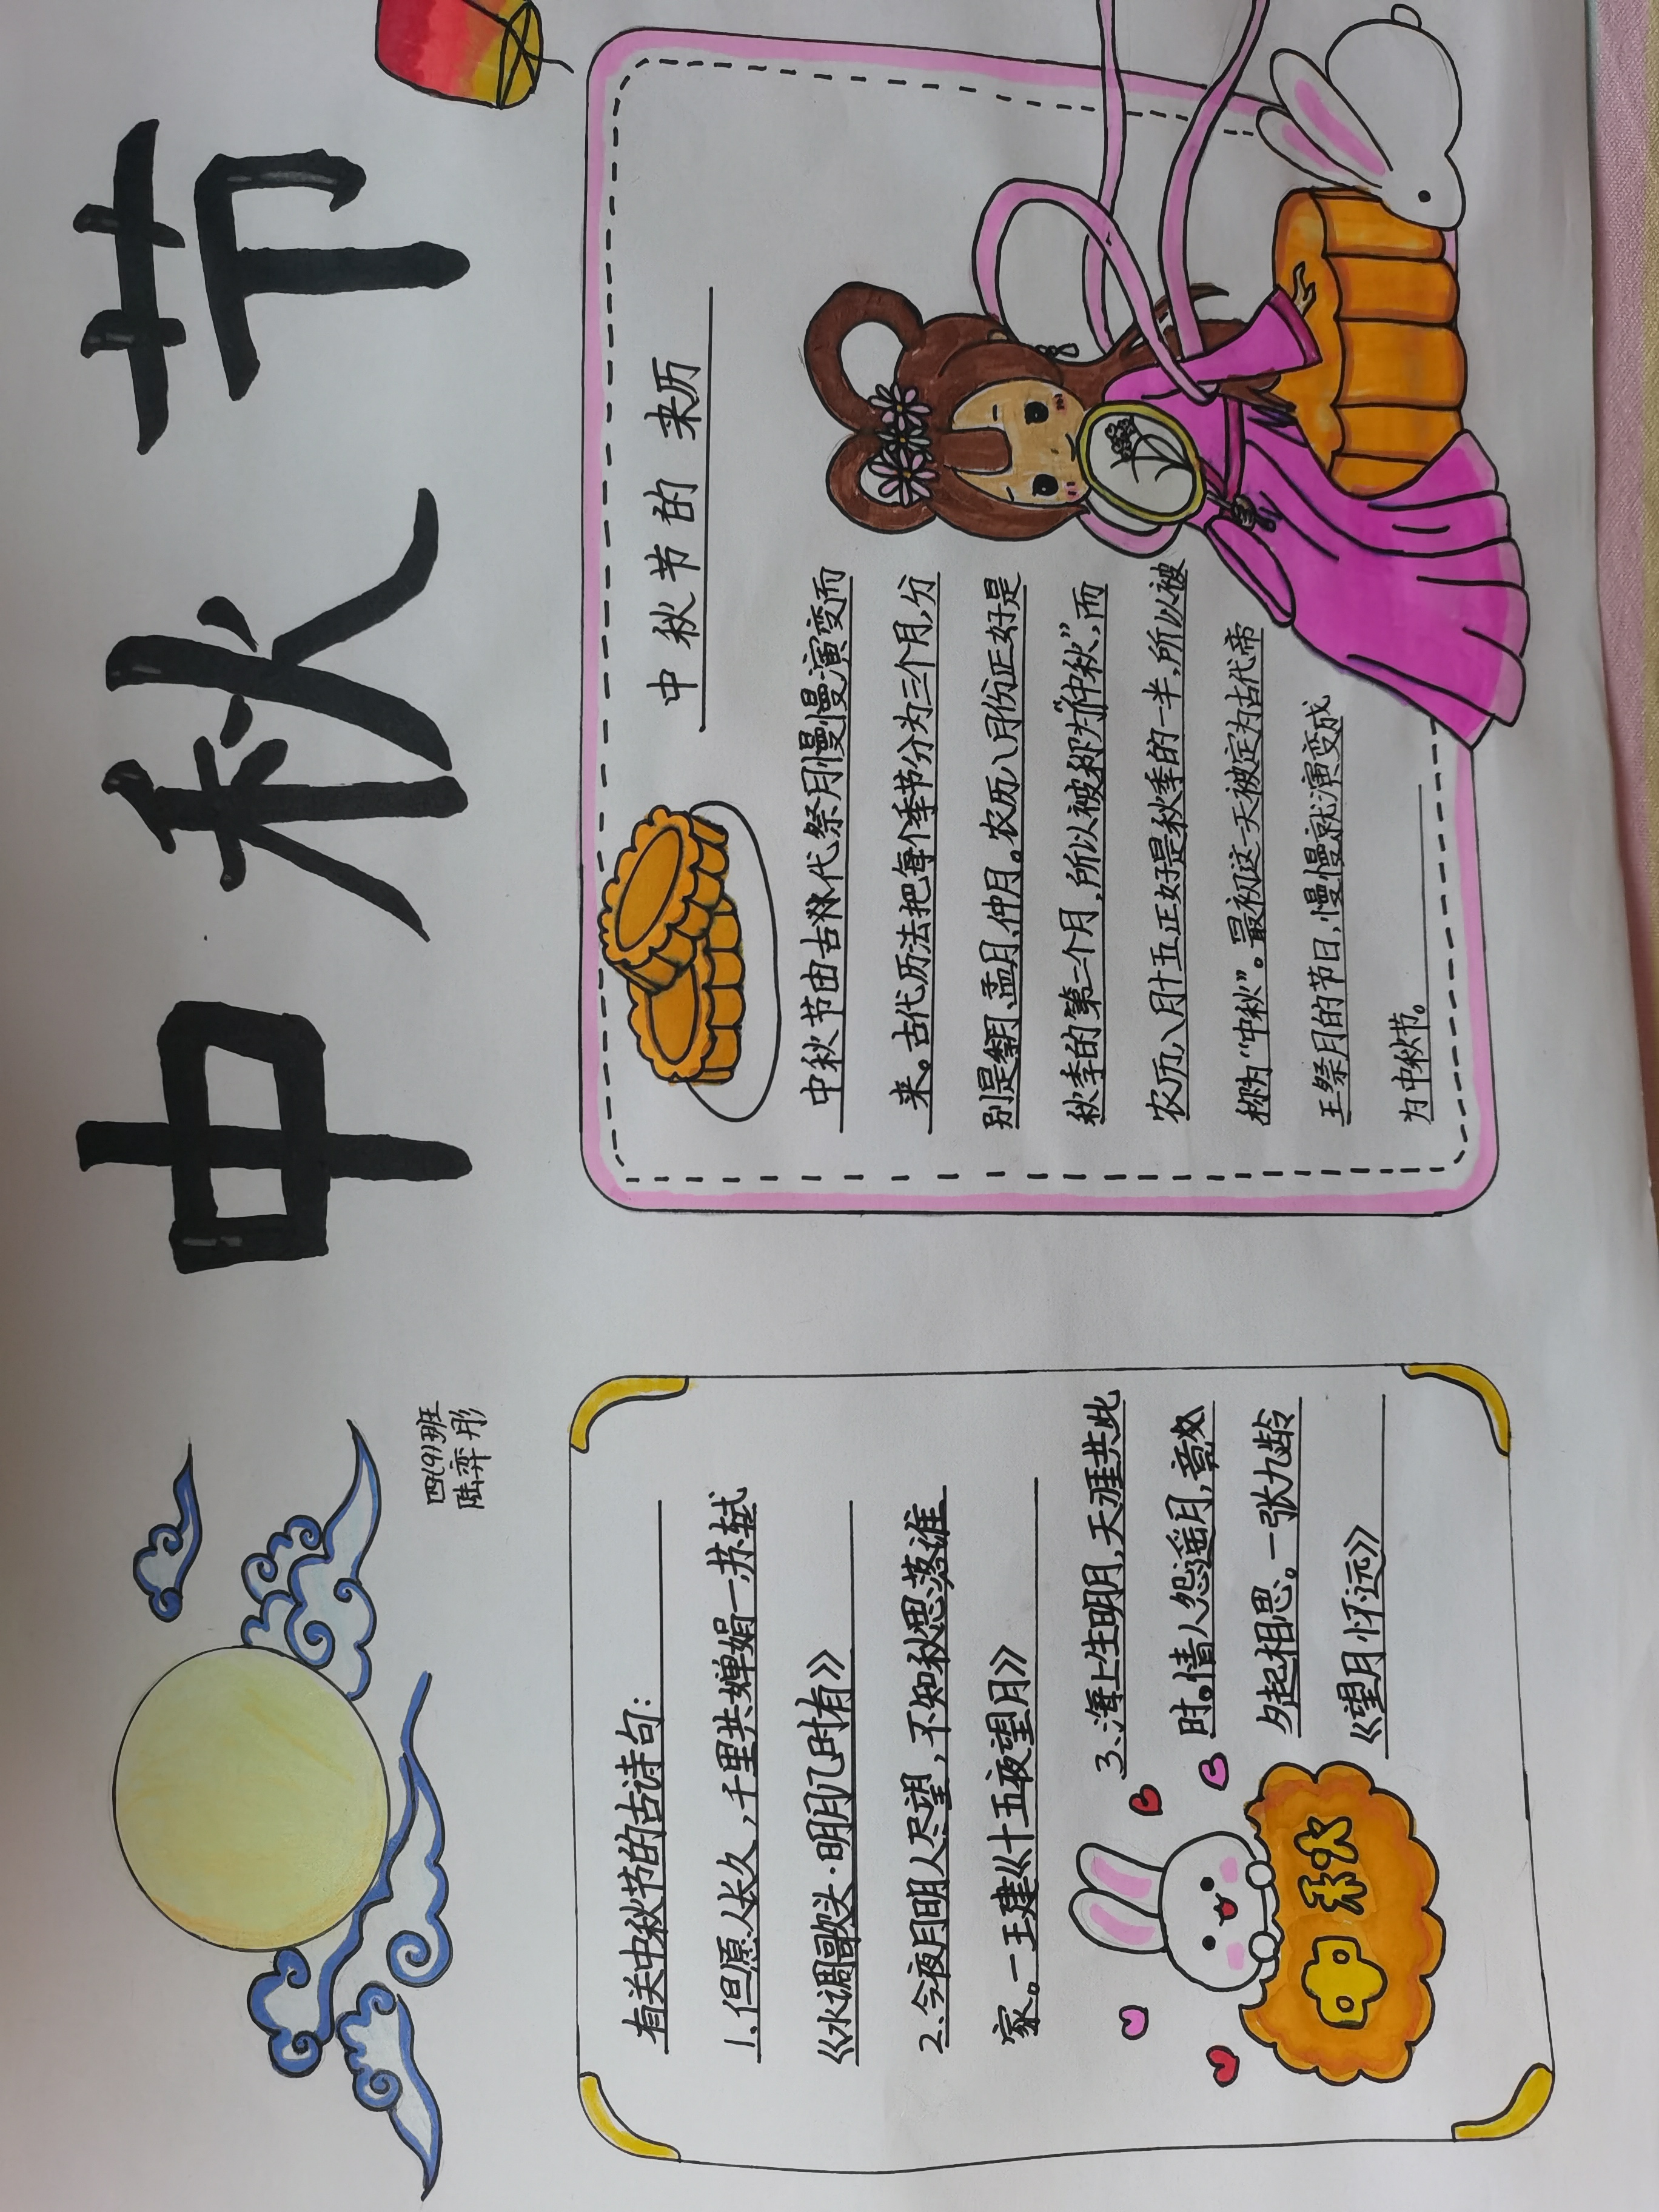 中秋节
四(9)班
陆弈彤
有关中秋节的古诗句:
1、但愿人长久,千里共婵娟一苏轼
《水调歌头·明月几时有》
2、今夜月明人尽望,不知秋思落谁
家。一王建《十五夜望月》
3、海上生明月,天涯共此
时。情人怨遥月,竟
夕起相思。一张九龄
《望月怀远》
中秋
中秋节的来历
中秋节由古代祭月慢慢演变而
来。古代历法把每个季节分为三个月,分
别是季月、孟月、仲月。农历八月份正好是
秋季的第二个月,所以被称为“仲秋”,而
农历八月十五正好是秋季的一半,所以被
称为“中秋”。最初这一天被定为古代帝
王祭月的节日,慢慢就演变成
为中秋节。